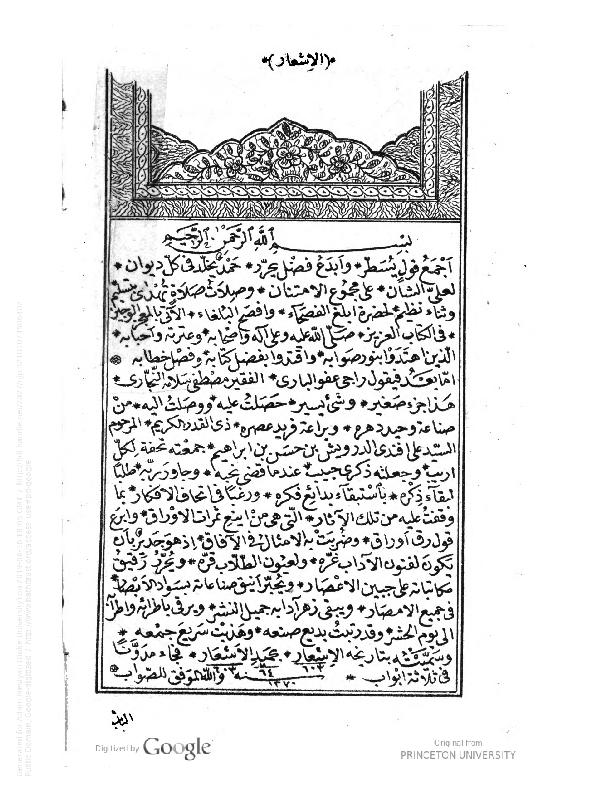 *(الاشعار)*
بسم الله الرحمن الرحيم
اجمع قول يسطر * وابدع فضل يحرر * حمد يخلد في كل ديوان *
لعلي الشان * على مجموع الامتنان * وصلات صلاة تهدى بتسليم
وثناء نظيم * لحضرة ابلغ الفصحاء * وافصح البلغاء * الآتي بالمعجز الوجيز
* في الكتاب العزيز * صلى الله عليه وعلى آله واصحابه * وعترته واحبابه *
الذين اهتدوا بنور صوابه * واقتدوا بفضل كتابه وفصل خطابه *
اما بعد فيقول راجي عفو الباري * الفقير مصطفى سلامة النجاري *
هذا جزء صغير * وشيء يسير * حصلت عليه * ووصلت اليه * من
صناعة وحيد دهره * وبراعة فريد عصره * ذي القدر الكريم * المرحوم
السيد علي افندي الدرويش بن حسن بن ابراهيم * جمعته تحفة لكل
اريب * وجعلته ذكرى حبيب * عندما قضى نحبه * وجاور ربه * طلبا
لبقاء ذكره * باستبقاء بدائع فكره * ورغبا في اتحاف الافكار * بما
وقفت عليه من تلك الآثار * التي هي من اينع ثمرات الاوراق * وابرع
قول رق اوراق * وضربت به الامثال في الآفاق * اذ هو جدير بأن
يكون لفنون الآداب غره * ولعيون الطلاب قره * ويحرر رقيق
مكاتباته على جبين الاعصار * ويحبر انيق صناعاته بسواد الابصار *
في جميع الامصار * ويبقى زهر آدابه جميل النشر * ويرقى باطرائه واطرابه
الى يوم الحشر * وقد رتبت بديع صنعه * وهذبت سريع جمعه *
وسميته بتاريخه الاشعار * بحميد الاشعار * فجاء مدونا
٦٠٣ ٦٤ ٦٠٣
في ثلاثة ابواب * سنة ١٢٧٠ * والله الموفق للصواب *
الباب
Digitized by Google
Original from
PRINCETON UNIVERSITY